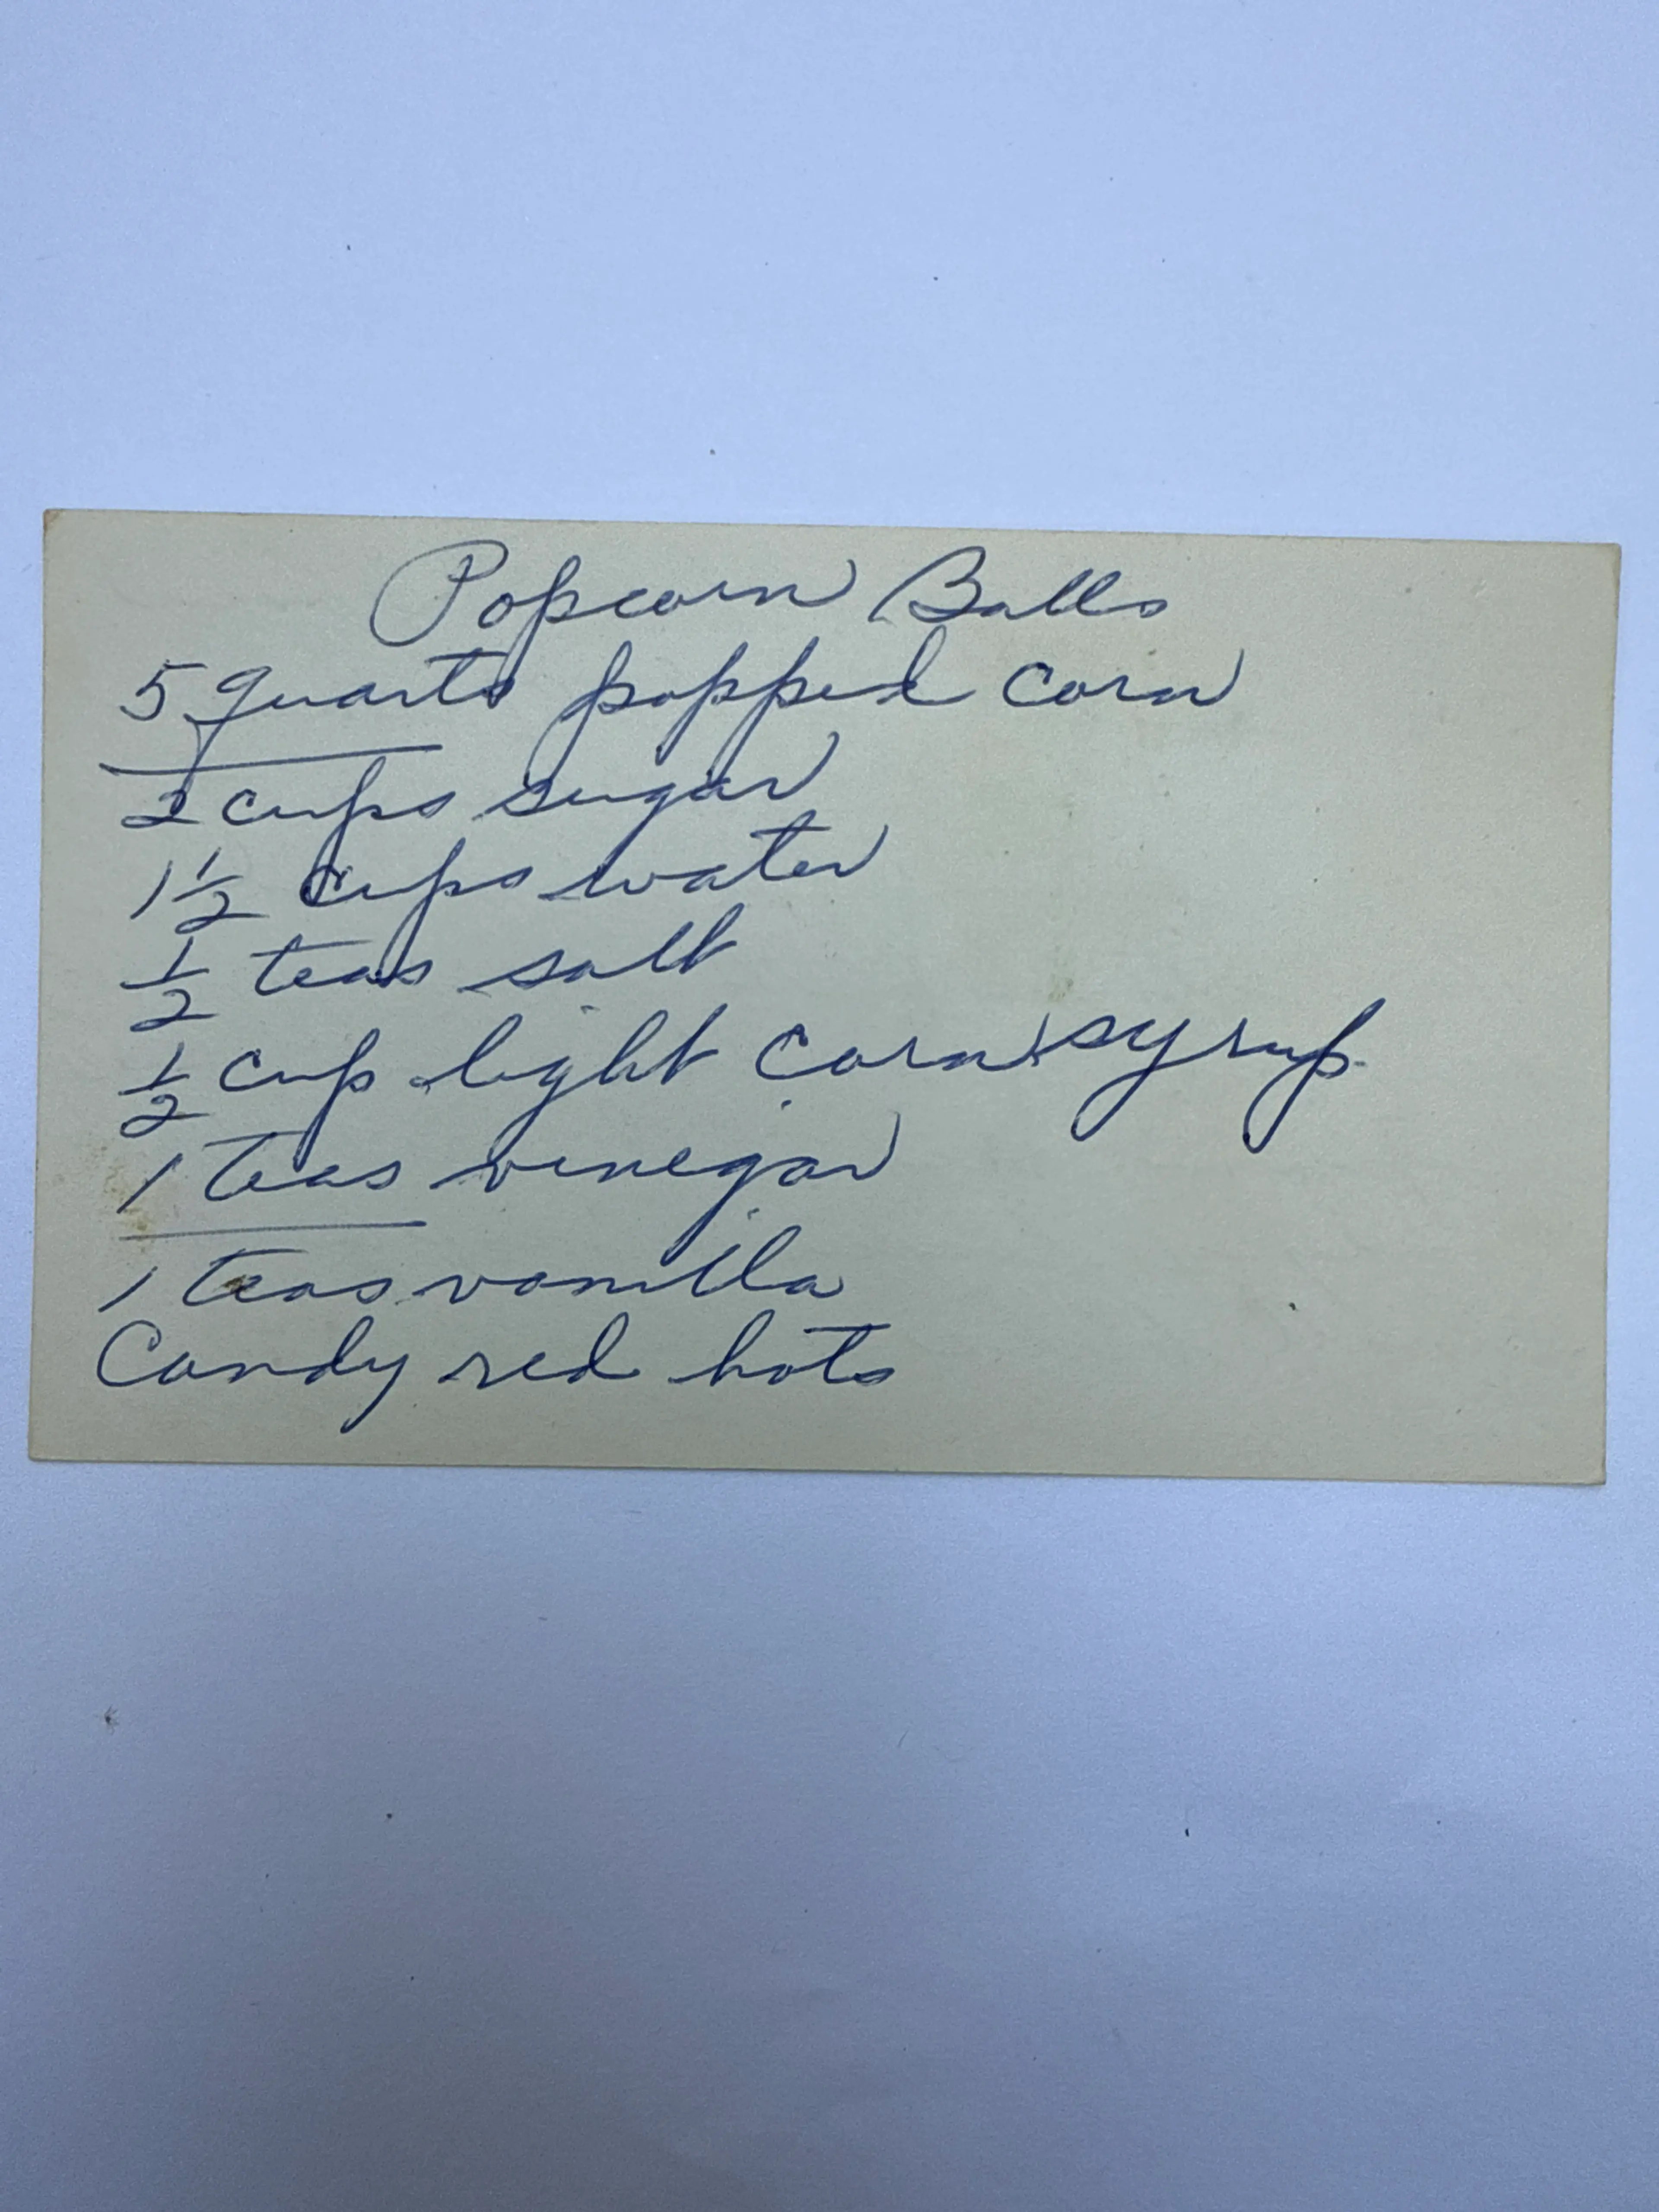 Popcorn Balls
5 quarts popped corn
2 cups sugar
1 1/2 cups water
1/2 teas salt
1/2 cup light corn syrup
1 teas vinegar
1 teas vanilla
Candy red hots